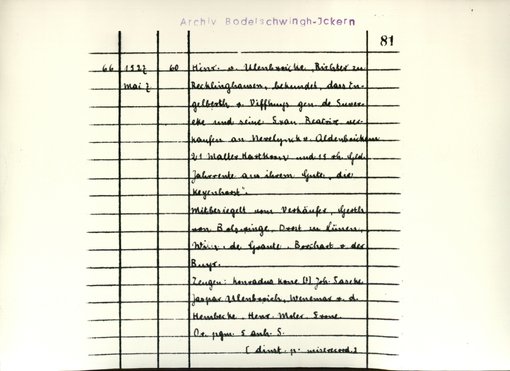 Archiv Bodelschwingh-Ickern
81
66 1527 60 Hinr. v. Ulenbroicke, Richter zu
Mai 7 Recklinghausen, bekundet, dass En-
gelberth v. Viffhuys gen. de
und seine Frau Beatrix ver-
kaufen an v. Aldenbockum
2 1 Malter Hartkorn und 15 rh. Gld.
Jahrrente aus ihrem Gute, die
Keyenhorst".
Mitbesiegelt vom Verkäufer, Gerth
von Bolswinge, Drost in Lünen,
de Graute, Borchart v. der
Buyr.
Zeugen: Konradus Kone (?) Joh. Tascke
Jaspar Ulenbroich, Wenemar v. d.
Hembecke, Henr. Moler, Frone.
Or. pgm. 5 anh. S.
( dinst. p. misericord.)